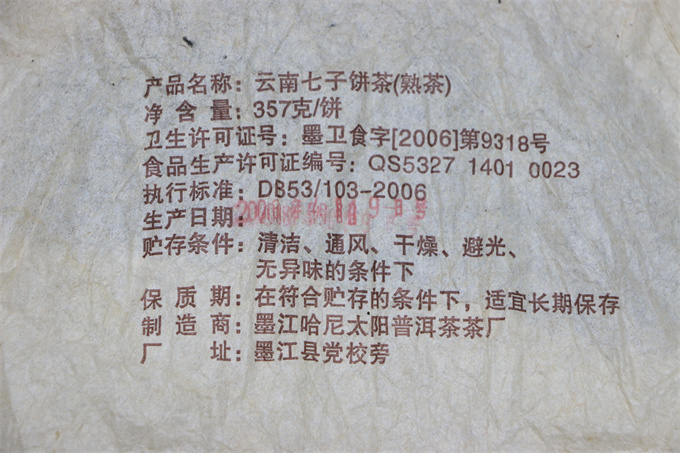 产品名称：云南七子饼茶(熟茶)
净含量：357克/饼
卫生许可证号：墨卫食字[2006]第9318号
食品生产许可证编号：QS5327 1401 0023
执行标准：DB53/103-2006
生产日期：
贮存条件：清洁、通风、干燥、避光、
无异味的条件下
保质期：在符合贮存的条件下，适宜长期保存
制造商：墨江哈尼太阳普洱茶茶厂
厂址：墨江县党校旁